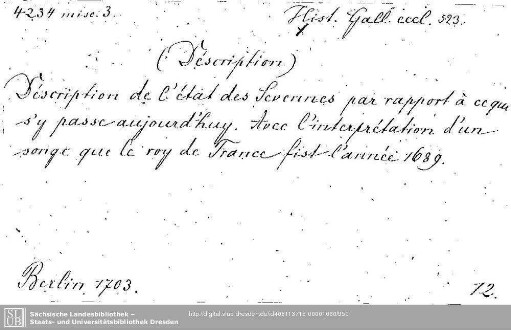 4234 misc. 3.
Hist. Gall. eccl. 523.
(Déscription)
Déscription de l'état des Sevennes par rapport à ce qui
s'y passe aujourd'huy. Avec l'interprétation d'un
songe que le roy de France fist l'année 1689.
Berlin 1703.
12.
Sächsische Landesbibliothek –
Staats- und Universitätsbibliothek Dresden